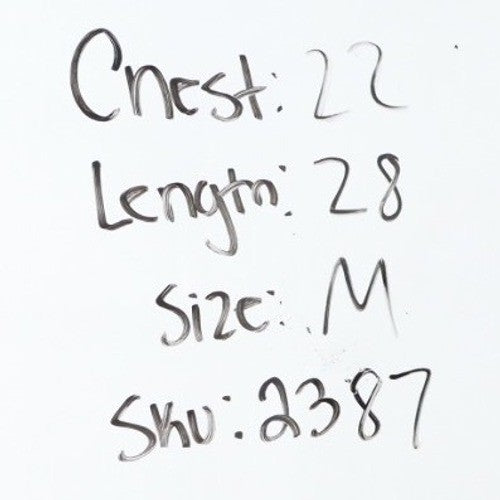 Chest: 22
Length: 28
Size: M
Sku: 2387